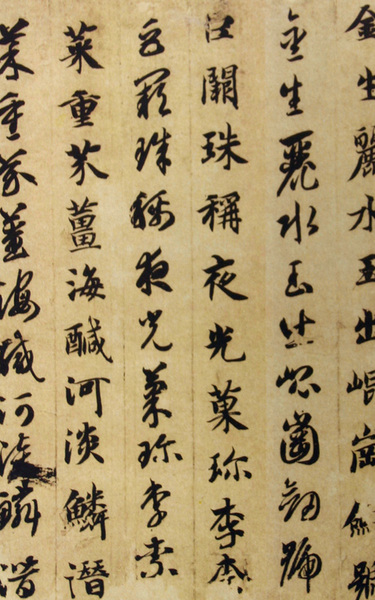 金生麗水玉出崐崗劒號
金生麗水玉出崐崗劒號
巨闕珠稱夜光菓珍李柰
巨闕珠稱夜光菓珍李柰
菜重芥薑海醎河淡鱗潛
菜重芥薑海醎河淡鱗潛